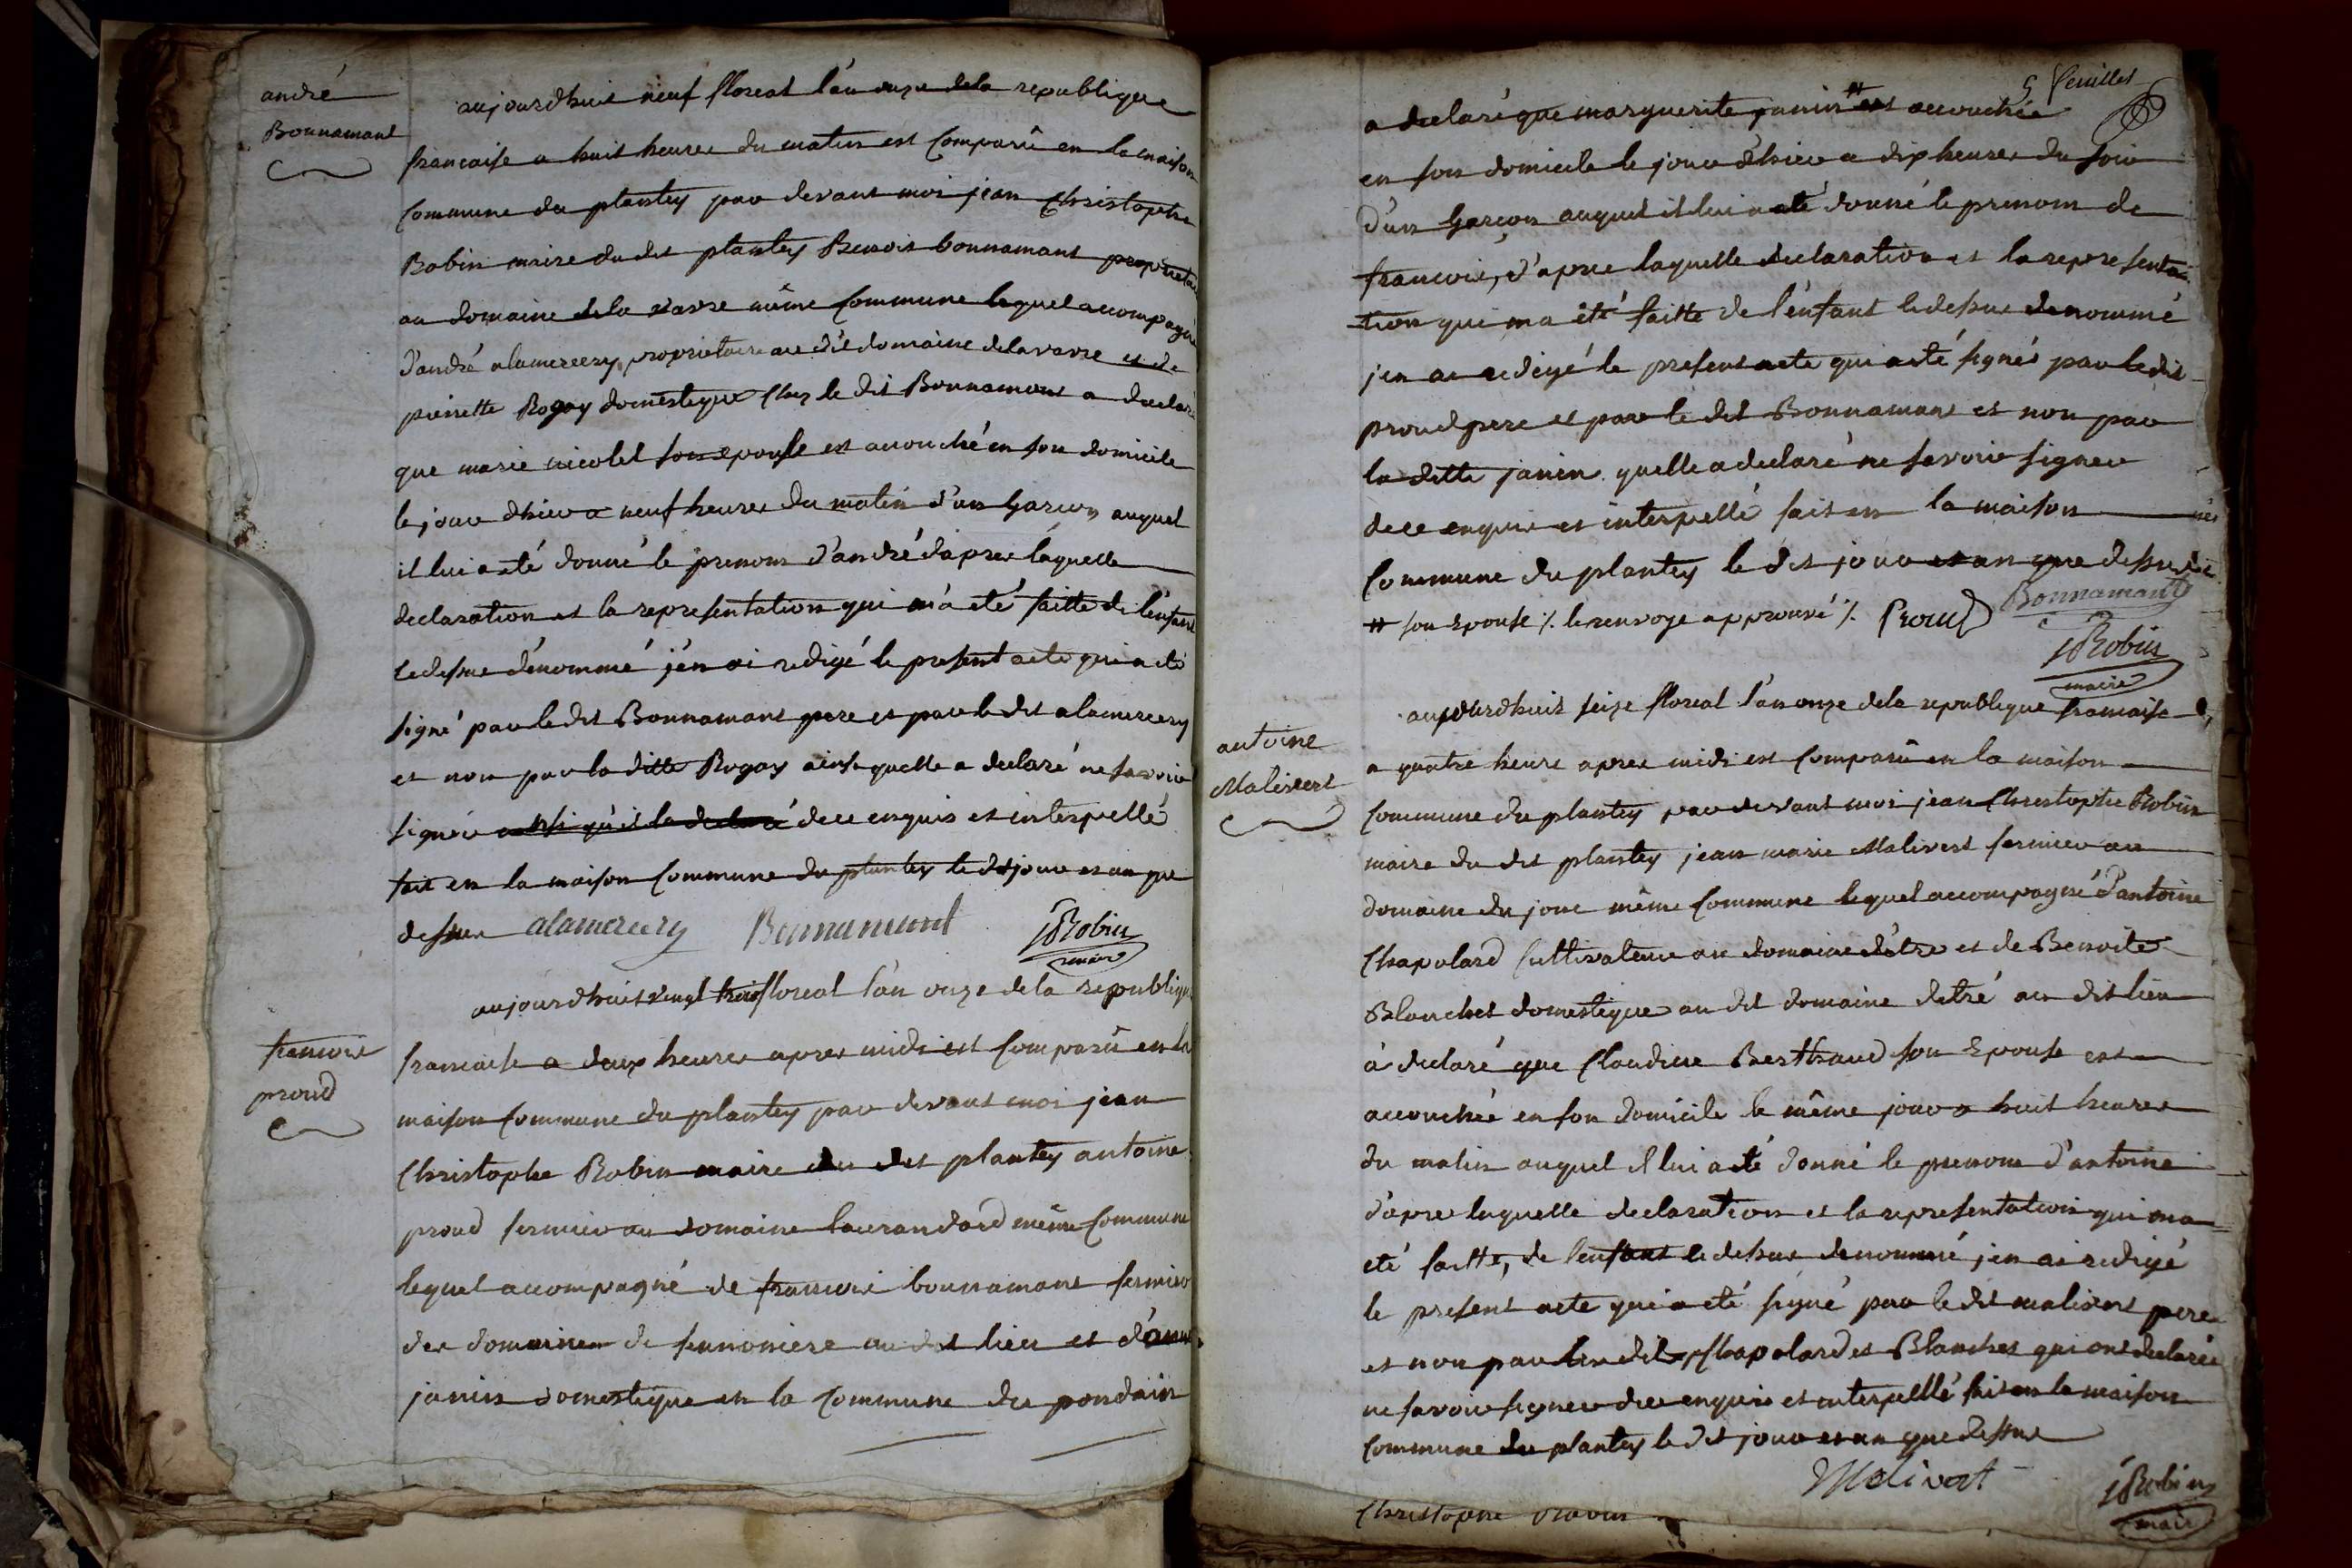 andré
Bonnamant
aujourdhuit neuf floreal l'an onze dela republique
francaise a huit heures du matin est Comparû en la maison
Commune du plantey par devant moi jean Christophe
Robin maire du dit plantey Benoit bonnamant proprietaire
au domaine dela varre même Commune lequel accompagné
d'andré alamercery proprietaire au dit domaine delavarre et de
pierrette Rogay domestique Chez le dit Bonnamant a declaré
que marie nicolet son epouse est accouché en son domicile
le jour dhier a neuf heures du matin d'un garcon auquel
il lui a eté donné le prenom d'andré d'apres laquelle
declaration et la representation qui m'a eté faitte de l'enfant
cedessus dénommé j'en ai redigé le present acte qui a eté
signé par le dit Bonnamant pere et par le dit alamercery
et non par la ditte Rogay ainsi quelle a declaré ne savoir
signer ainsi qu'il la declaré dece enquis et interpellé
fait en la maison Commune du plantey le dit jour et an que
dessus alamercery Bonnamant JRobin
maire
francois
proud
aujourdhuit vingt trois floreal l'an onze dela republique
francaise a deux heures apres midi est Comparû en la
maison Commune du plantey par devant moi jean
Christophe Robin maire du dit plantey antoine
proud fermier au domaine même Commune
lequel accompagné de francois bonnamant fermier
des domaines de au dit lieu et d'anne
janin domestique en la Commune du pondain
5 feuillet
a declaré que marguerite janin # est accouchée
en son domicile le jour d'hier a dix heures du soir
d'un garcon auquel il lui a eté donné le prenom de
francois, d'apres laquelle declaration et la representa
tion qui ma eté faitte de l'enfant cedessus denommé
j'en ai redigé le present acte qui a eté signés par le dit
proud pere et par le dit Bonnamant et non par
la ditte janin quelle a declaré ne savoir signer
dece enquis et interpellé fait en la maison
Commune du plantey le dit jour et an que dessus
# son Epouse ./. le renvoye approuvé ./. Proud Bonnamant
JRobin
maire
antoine
Malivert
aujourdhuit seize floreal l'an onze dela republique francaise
a quatre heure apres midi est Comparû en la maison
Commune du plantey par devant moi jean Christophe Robin
maire du dit plantey jean marie Malivert fermier au
domaine du jonc même Commune lequel accompagné d'antoine
Chapolard Cultivateur au domaine détré et de Benoite
Blanchet domestique au dit domaine détré au dit lieu
à declaré que Claudine Berthaud son Epouse est
accouchée en son domicile le même jour a huit heures
du matin auquel il lui a eté donné le prenom d'antoine
d'apres laquelle declaration et la representation qui ma
eté faitte, de l'enfant cedessus denommé j'en ai redigé
le present acte qui a eté signé par le dit malivert pere
et non par les dits Chapolard et Blanchet qui ont declarés
ne savoir signer dece enquis et interpellé fait en la maison
Commune du plantey le dit jour et an que dessus
Malivert JRobin
maire
Christophe